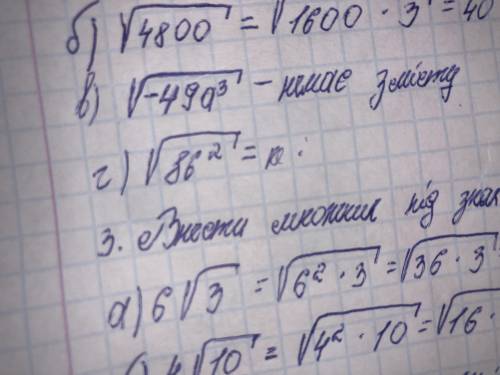 б) √4800 = √1600 · 3 = 40
в) √-49a³ - немає змісту
г) √86² =
3. Внести множник під знак
а) 6√3 = √6² · 3 = √36 · 3
4√10 = √4² · 10 = √16 ·